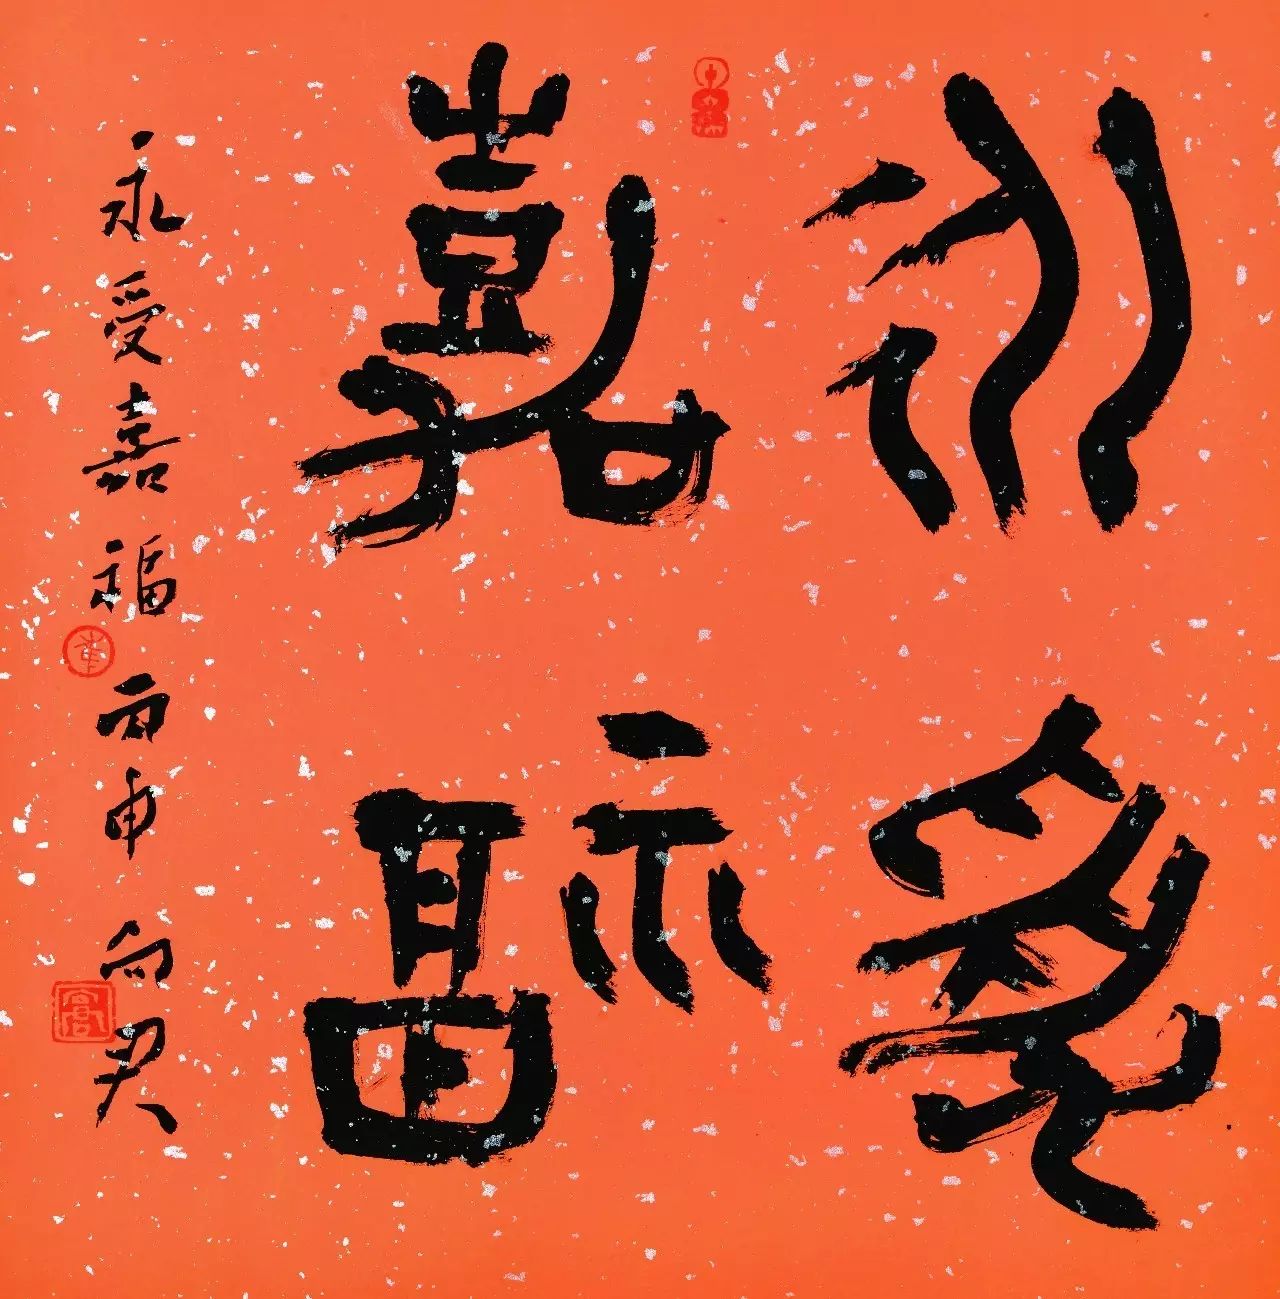 永受
嘉福
永受嘉福丙申向君